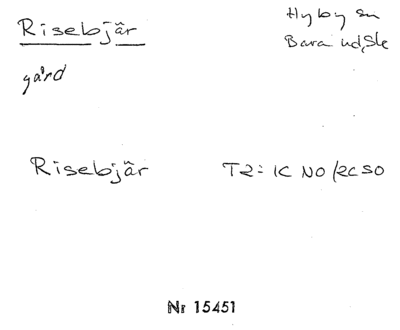 Risebjâr
Hyby sn
Bara hd, Sk
gård
Risebjâr
T2: 1C NO/2C SO
Nr 15451